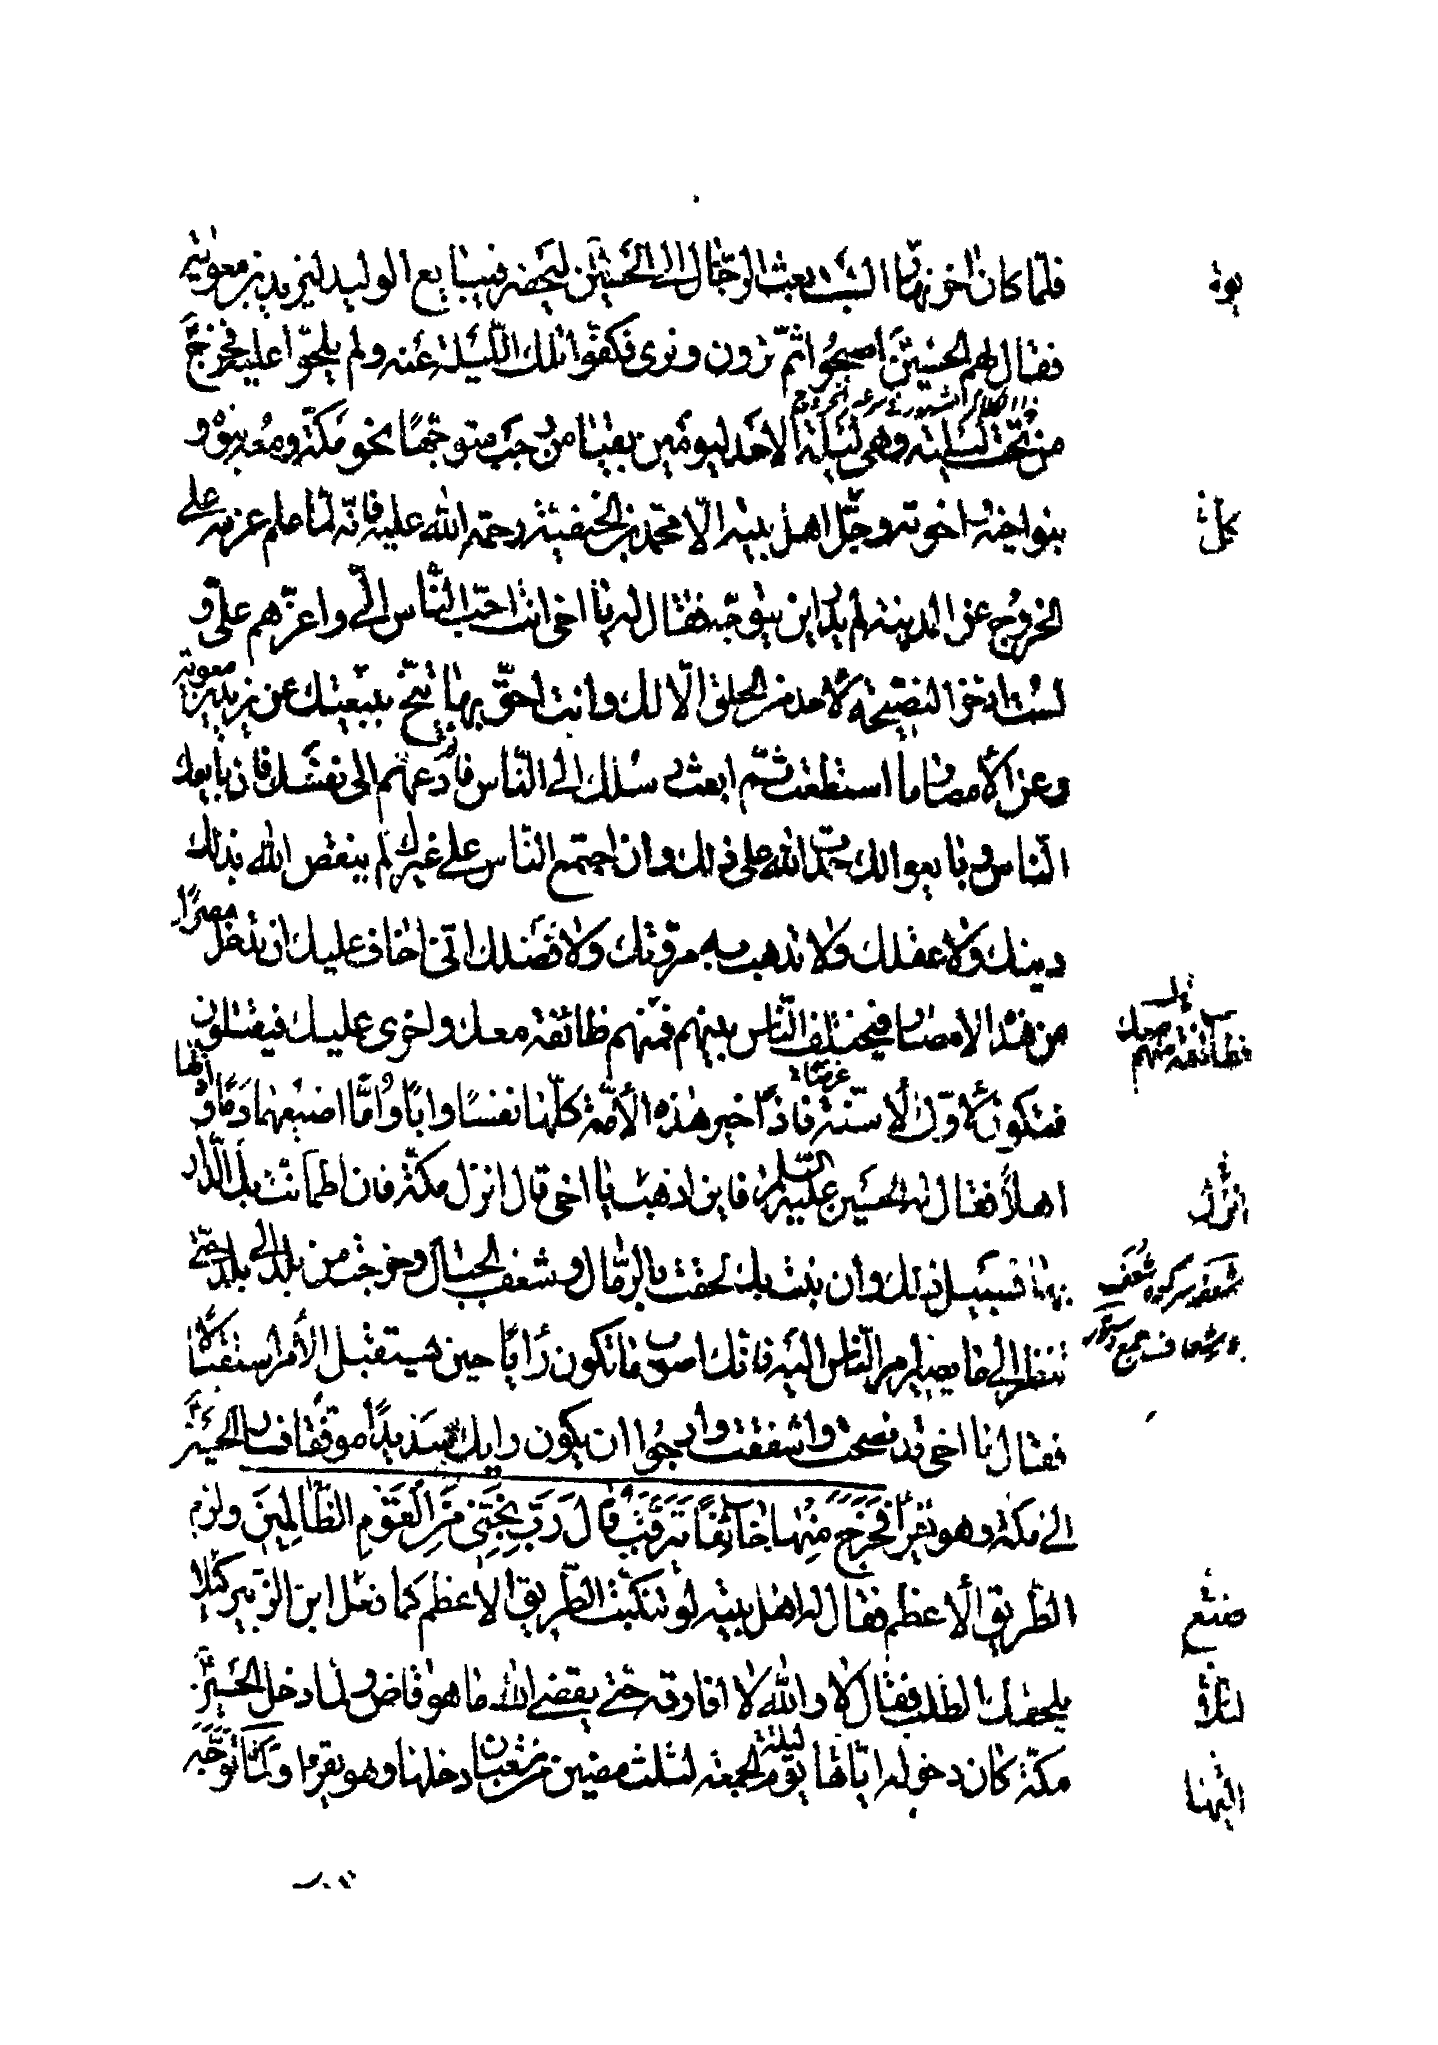 فلمّا كان اخر نهار السبت بعث الرجال الى الحسين ليحضر فيبايع الوليد ليزيد بن معوية
يوم
فقال لهم الحسين اصبحوا ثمّ ترون ونرى فكفّوا تلك اللّيلة عنه ولم يلحّوا عليه فخرج
من تحت ليلته وهى ليلة الاحد ليومين بقيا من رجب متوجّها نحو مكّة ومعه بنوه و
بنو اخيه واخوته وجلّ اهل بيته الّا محمّد بن الحنفيّة رحمة الله عليه فانّه لمّا علم عزمه على
كل
الخروج عن المدينة لم يدر اين يتوجّه فقال له يا اخى انت احبّ النّاس الىّ واعزّهم علىّ و
لست ادخر النصيحة لاحد من الخلق الّا لك وانت احقّ بها تنحّ ببيعتك عن يزيد بن معوية
وعن الأمصار ما استطعت ثمّ ابعث رسلك الى النّاس فادعهم الى نفسك فان بايعك
النّاس وبايعوا لك حمدت الله على ذلك وان اجتمع النّاس على غيرك لم ينقص الله بذلك
دينك ولا عقلك ولا تذهب به مروّتك ولا فضلك انّى اخاف عليك ان تدخل مصرًا
من هذه الامصار فيختلف النّاس بينهم فمنهم طائفة معك واخرى عليك فيقتتلون
فطائفة منهم معك
فتكون لأوّل الأسنّة غرضًا فاذًا خير هذه الأمّة كلّها نفسًا وابًا وامًّا اضيعها دمًا و اذلها
اهلاً فقال له الحسين عليه السّلم فاين اذهب يا اخى قال انزل مكّة فان اطمأنّت بك الدّار
انزل
بها فسبيل ذلك وان نبت بك لحقت بالرّمال وشعف الجبال وخرجت من بلد الى بلد حتّى
تنظر الى ما يصير امر النّاس اليه فانّك اصوب ما تكون رأيًا حين تستقبل الأمر استقبالًا
فقال يا اخى قد نصحت واشفقت وارجوا ان يكون رايك سديدًا موفّقًا فسار الحسين
الى مكّة وهو يقرأ فَخَرَجَ مِنْها خائِفًا يَتَرَقَّبُ قالَ رَبِّ نَجِّنى مِنَ الْقَوْمِ الظّالِمينَ ولزم
الطّريق الأعظم فقال له اهل بيته لو تنكّبت الطّريق الأعظم كما فعل ابن الزّبير كيلا
صنع
يلحقك الطلب فقال لا والله لا افارقه حتّى يقضى الله ما هو قاض ولمّا دخل الحسين
لئلا
مكّة كان دخوله ايّاها ليلة يوم الجمعة لثلث مضين من شعبان دخلها وهو يقرء ولمّا توجّه
اليها